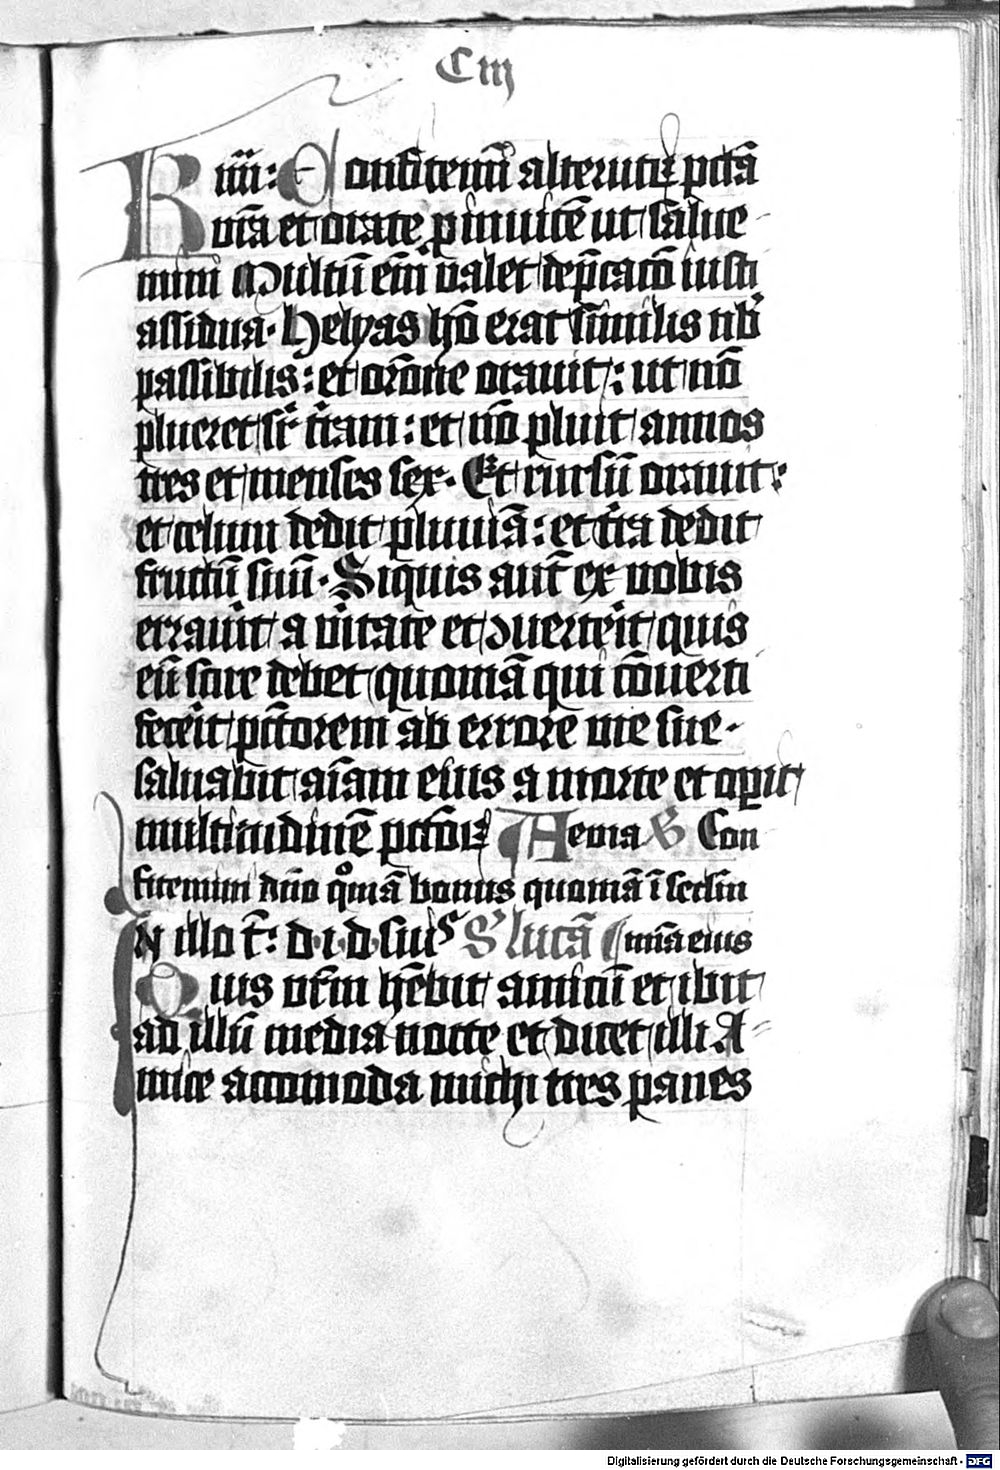 Ciij
Riīī: Confitemī alterutꝝ pctā
vr̄a et orate p inuicē ut salue
mini Multū em̄ valet dep̄cacō iusti
assidua· Helyas hō erat similis nb̄
passibilis: et orōne orauit: ut nō
plueret sr̄ tr̄am: et nō pluit annos
tres et menses sex· Et rursū orauit:
et celum dedit pluuiā: et tr̄ra dedit
fructū suū· Siquis aut̄ ex vobis
errauit a v̄itate et ꝯuerteit quis
eū scire debet quoniā qui cōuerti
feceit pctorem ab errore vie sue·
saluabit aīam eius a morte et opit
multitudinē pctōꝝ Aeuia V Con
fitemini dn̄o qm̄ā bonus quoniā ī seclm̄
In illo t̄: d·i·d·suis S lucā mīa eius
Quis vr̄m hēbit amicū et ibit
ad illū media nocte et dicet illi A-
mice accomoda michi tres panes
Digitalisierung gefördert durch die Deutsche Forschungsgemeinschaft - DFG